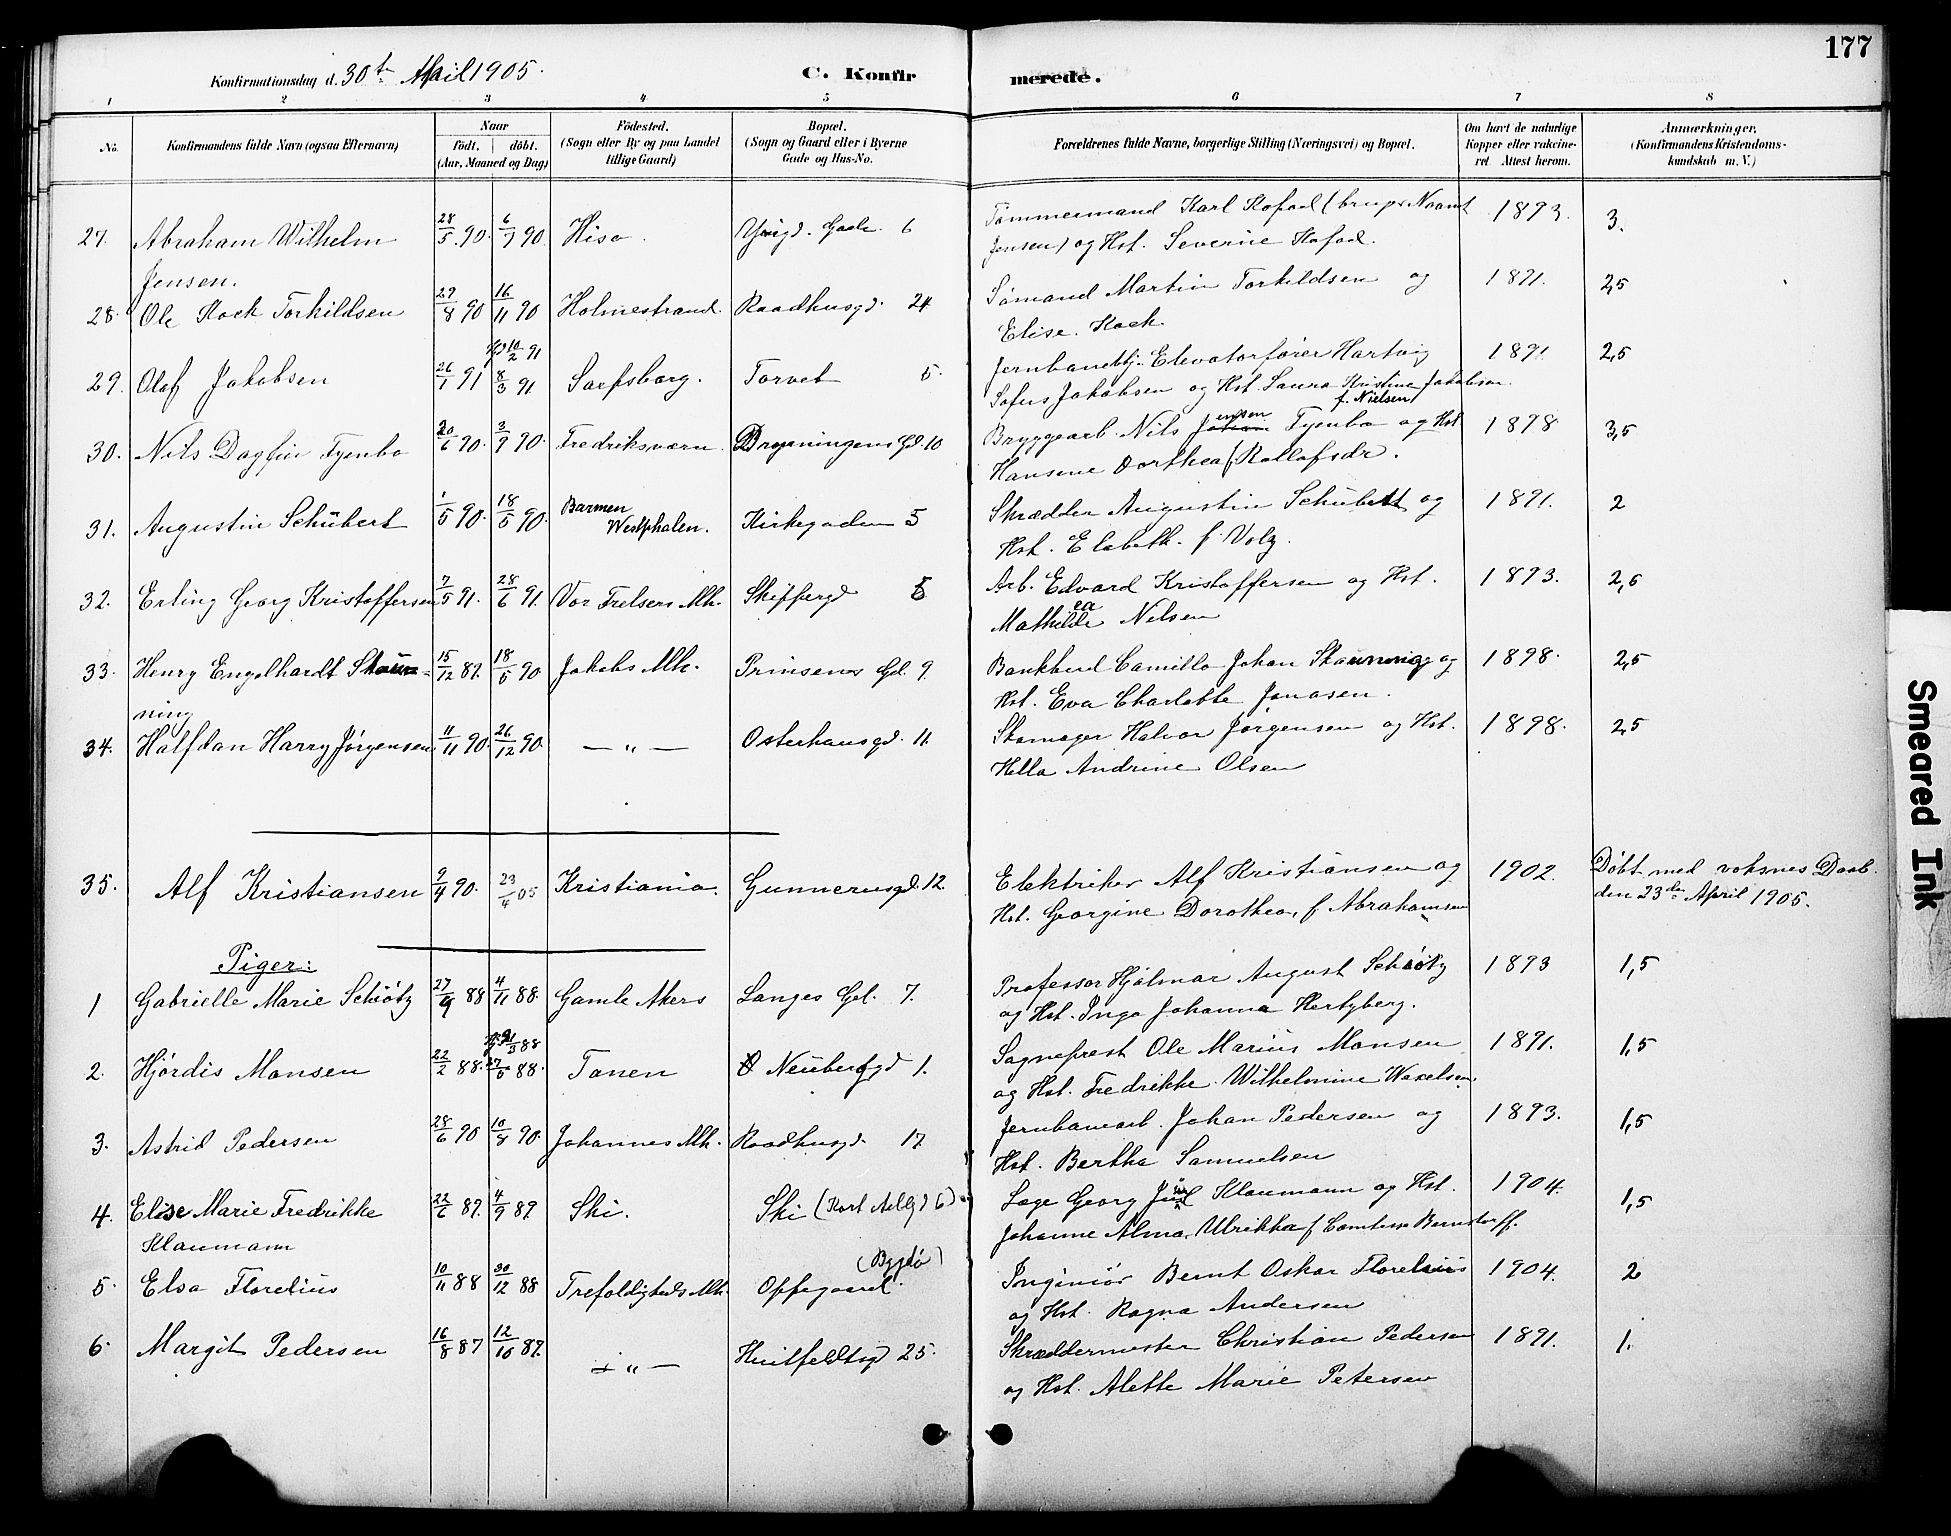 177
Konfirmationsdag d. 30te April 1905. C. Konfirmerede.
1 2 3 4 5 6 7 8
No. Konfirmandens fulde Navn (ogsaa Efternavn) Naar födt. döbt. (Aar, Maaned og Dag) Födested. (Sogn eller By og paa Landet tillige Gaard) Bopæl. (Sogn og Gaard eller i Byerne Gade og Hus-No. Forældrenes fulde Navne, borgerlige Stilling (Næringsvei) og Bopæl. Om havt de naturlige Kopper eller vakcineret. Attest herom. Anmærkninger. (Konfirmandens Kristendomskundskab m. V.)
27. Abraham Wilhelm 28/5 90. 6/7 90. Hisø. Gade 6 Tømmermand Karl Kofod (bruger Navnet 1893. 3.
Jensen. Jensen) og Hst. Severine Kofod.
28. Ole Kock Torkildsen 29/8 90 16/11 90 Holmestrand. Raadhusgd. 24 Sømand Martin Torkildsen og 1891. 2,5
Elise Kock.
29. Olaf Jakobsen 26/1 91 10/2 91 8/3 91 Sarpsborg. Torvet 5. Jernbanebtj. Elevatorfører Hartvig 1891 2,5
Sofus Jakobsen og Hst. Laura Kristine Jakobsen f. Nielsen
30. Nils Dagfin Tyenbo 20/6 90. 3/9 90. Fredriksværn Dronningens Gd. 10 Bryggearb. Nils Jensen Tyenbo og Hst 1898 3,5
Hansine Dorthea Rollofsdr.
31. Augustin Schübert 1/5 90. 18/5 90. Barmen Westphalen. Kirkegaden 5 Skrædder Augustin Schübert og 1891. 2
Hst. Elsbeth f. Volz.
32. Erling Georg Kristoffersen 7/5 91. 28/6 91. Vor Frelsers Mh. Skippergd 5 Arb. Edvard Kristoffersen og Hst. 1893. 2,5
Mathea Nilsen
33. Henry Engelhardt Skau- 15/12 89. 18/5 90 Jakobs Mh. Prinsens Gd. 9. Bankbud Camillo Johan Skauning og 1898. 2,5
ning Hst. Eva Charlotte Jonasen.
34. Halfdan Harry Jørgensen 11/11 90. 26/12 90. — " — Osterhausgd. 11. Skomager Halvor Jørgensen og Hst. 1898. 2,5
Hella Andrine Olsen
35. Alf Kristiansen 9/4 90. 23/4 05 Kristiania. Gunnerusgd. 12. Elektriker Alf Kristiansen og 1902. Døbt med voksnes Daab
Hst. Georgine Dorothea, f Abrahamsen den 23de April 1905.
Piger:
1 Gabrielle Marie Schiøtz 27/9 88 4/11 88. Gamle Akers Langes Gd. 7. Professor Hjalmar August Schiøtz 1893 1,5
og Hst. Inga Johanna Hertzberg.
2. Hjørdis Monsen 22/2 88. 21/3 88 27/5 88. Tanen Neubergd 1. Sogneprest Ole Marius Monsen 1891. 1,5
og Hst. Fredrikke Wilhelmine Waxelsen
3. Astrid Pedersen 28/6 90 10/8 90. Johannes Mh. Raadhusgd. 17. Jernbanearb. Johan Pedersen og 1893. 1,5
Hst. Bertha Samuelsen
4. Elise Marie Fredrikke 22/6 89. 4/9 89 Ski. Ski (Kort Adelgd 6) Læge Georg Juul Klaumann og Hst. 1904. 1,5
Klaumann Johanne Alma Ulrikka f Bernstorff.
5. Elsa Florelius 10/11 88 30/12 88 Trefoldigheds Mh. Oppegaard. (Bygdø) Ingeniør Bernt Oskar Florelius 1904. 2
og Hst. Ragna Andersen
6. Margit Pedersen 16/8 87 12/10 87. — " — Huitfeldtsgd 25. Skræddermester Christian Pedersen 1891. 1.
og Hst. Alette Marie Petersen
Smeared Ink